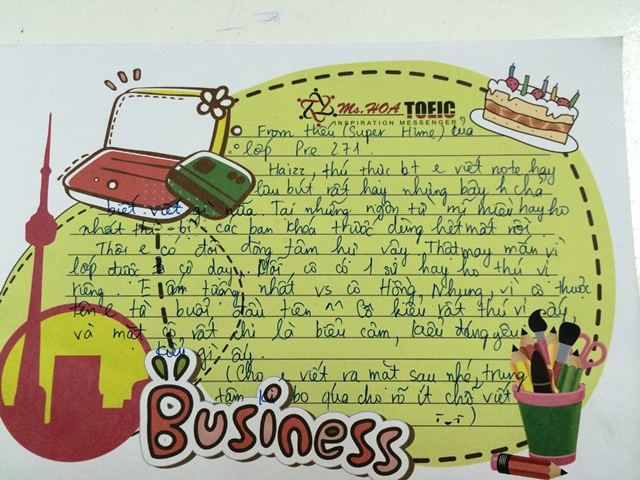 Ms.HOA TOEIC
INSPIRATION MESSENGER
From Hiếu (Super Hime) của
lớp Pre 271.
Haizz, thú thực bt e viết note hay
lưu bút rất hay nhưng bây h chả
biết viết gì nữa. Tại những ngôn từ mĩ miều hay ho
nhất thì bị các bạn khoá trước dùng hết mất rồi
Thôi e có đôi dòng tâm sự vậy. Thật may mắn vì
lớp được cô dạy. Mỗi cô có 1 sự hay ho thú vị
riêng. E ấn tượng nhất vs cô Hồng Nhung, vì cô thuộc
tên e từ buổi đầu tiên ^^ Cô kiểu rất thú vị ấy
và mặt cô rất chi là biểu cảm, kiểu đáng yêu
kiểu gì ấy.
(Cho e viết ra mặt sau nhé, trung
tâm bo qua cho rõ ít chỗ viết
-.-)
Business